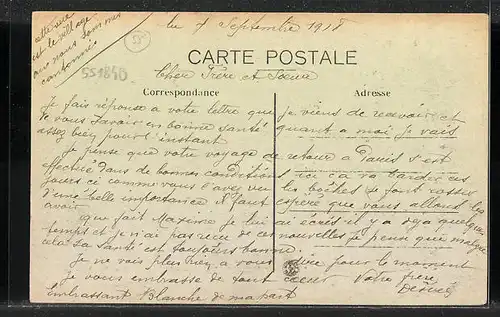 cette vue
est le village
où nous sommes
cantonnés
le 7 Septembre 1918
CARTE POSTALE
551840
Cher Frère et Soeur
Correspondance
Adresse
Je fais réponse a votre lettre que je viens de recevoir et
je vous savais en bonne santé quant a moi je vais
assez bien pour l'instant
Je pense que votre voyage de retour a Paris s'est
effectué dans de bonnes conditions ici ca va barder ces
jours ci comme vous l'avez vu les boches se font rosser
d'une belle importance il faut espéré que vous allons les
avoir
que fait Maxime je lui ai ecris il y a deja quelque
temps et je n'ai pas recu de ces nouvelles je pense que malgré
cela sa santé est toujours bonne
Je ne vais plus rien a vous dire pour le moment
Je vous embrasse de tout coeur Votre frère
embrassant Blanche de ma part Désiré